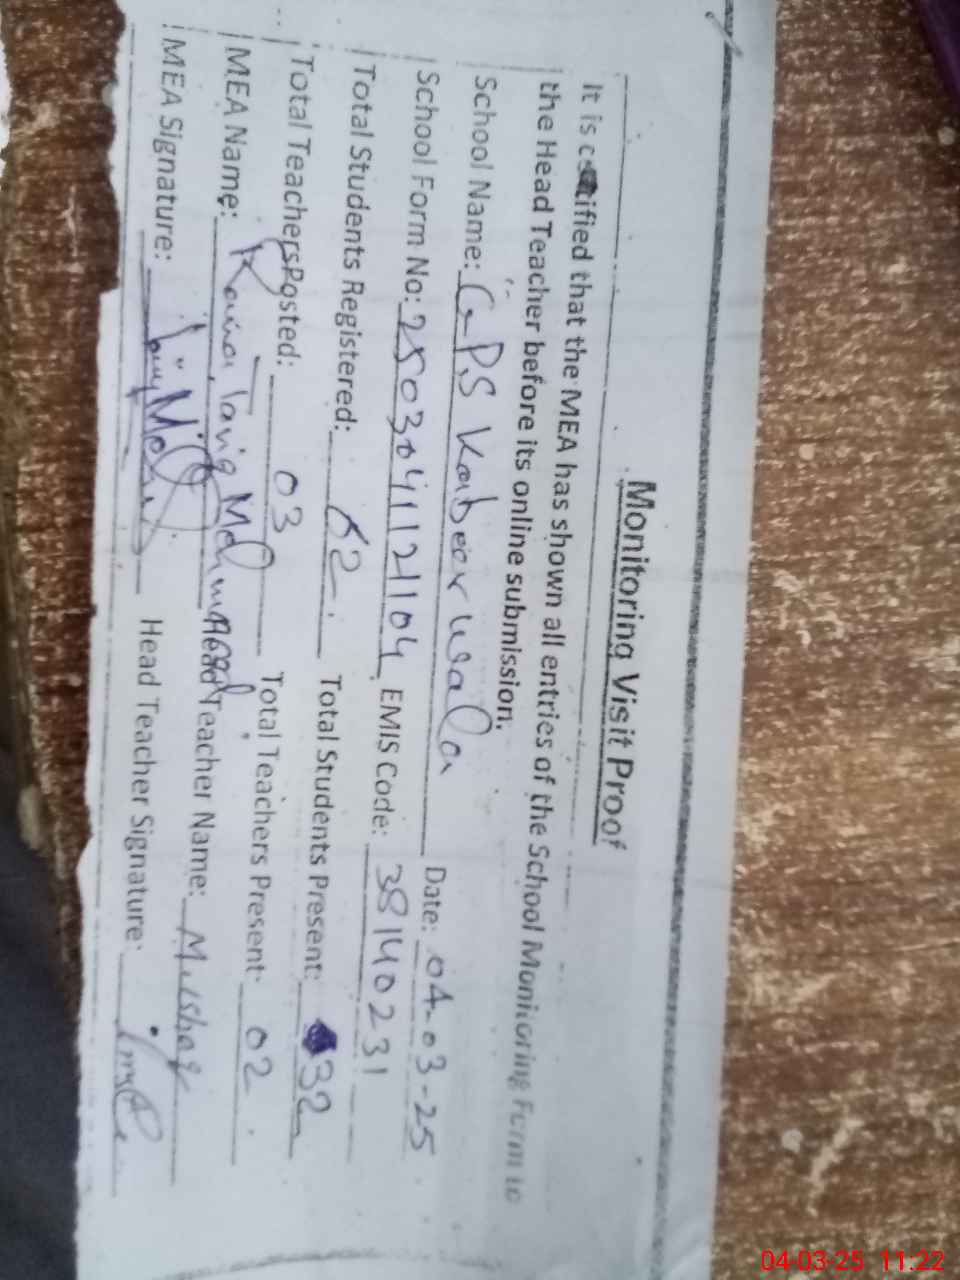 Monitoring Visit Proof
It is certified that the MEA has shown all entries of the School Monitoring Form to
the Head Teacher before its online submission.
School Name: GPS Kabeer wala Date: 04-03-25
School Form No: 2503041121104 EMIS Code: 38140231
Total Students Registered: 62 Total Students Present: 32
Total Teachers Posted: 03 Total Teachers Present: 02
MEA Name: Tariq Mehmood Head Teacher Name: Mushtaq
MEA Signature: Head Teacher Signature:
04-03-25 11:22